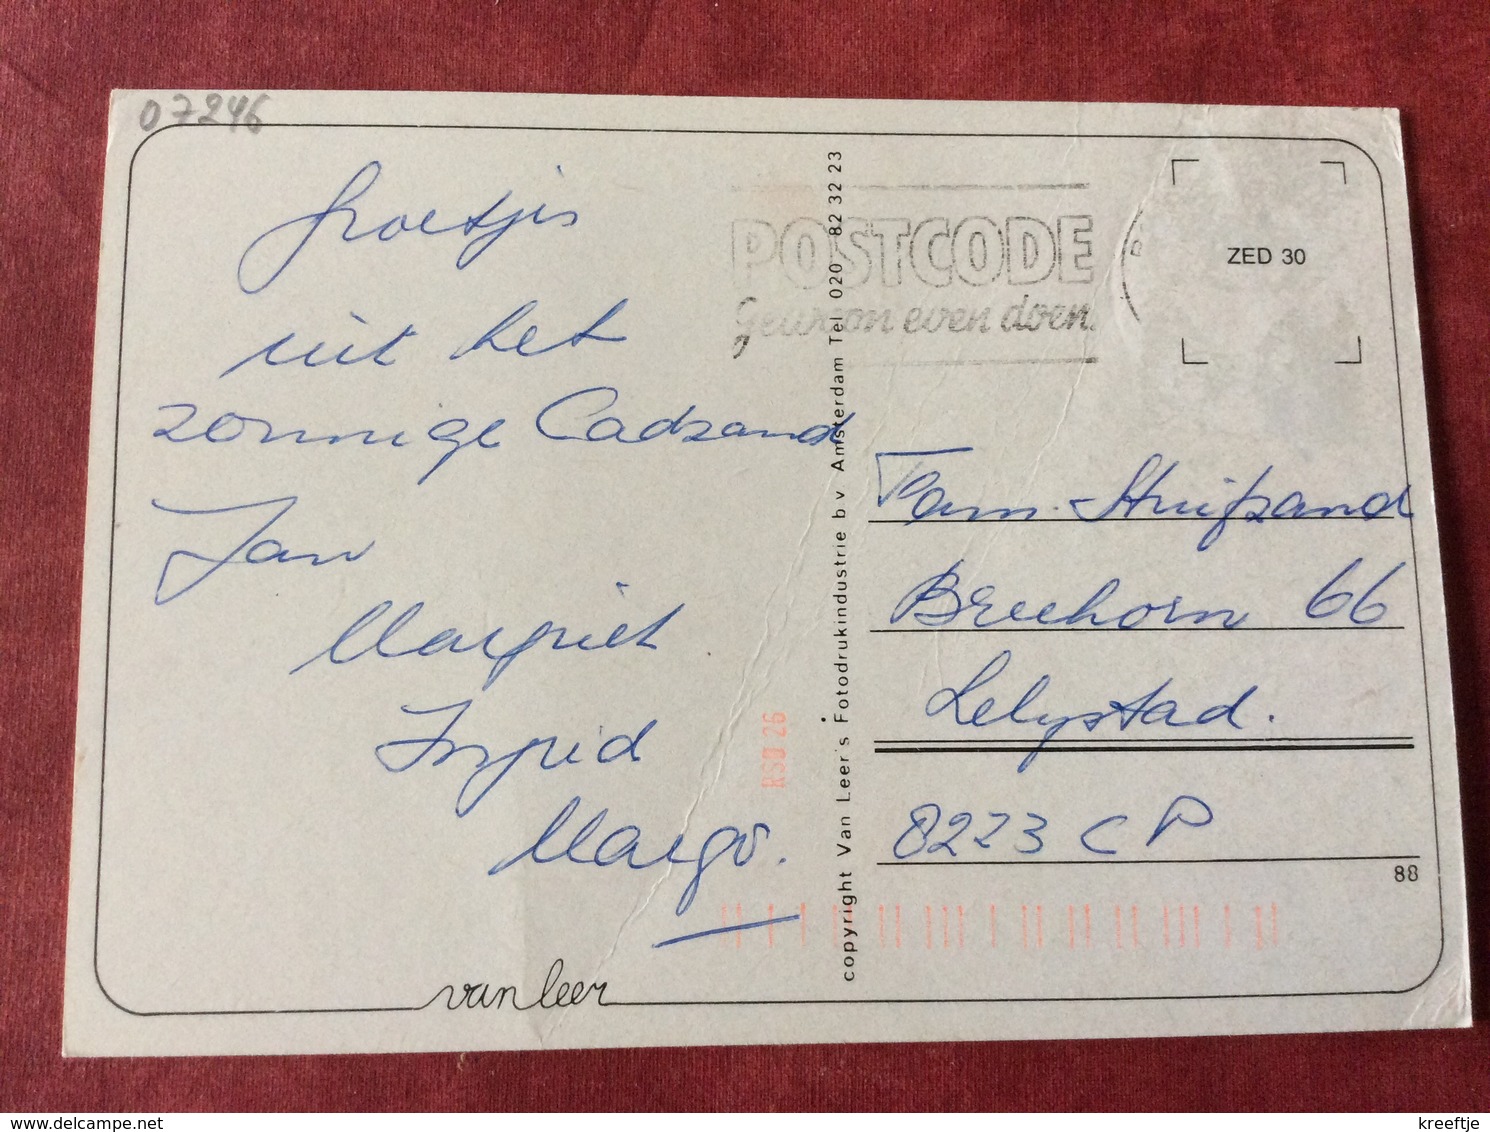 07246
Groetjes
uit het
zonnige Cadzand
Jan
Margriet
Ingrid
Margo.
van leer
copyright Van Leer's Fotodrukindustrie b.v. Amsterdam Tel. 020 82 32 23
POSTCODE
Gewoon even doen.
ZED 30
Fam. Struijzand
Breehorn 66
Lelystad.
8223 CP
88
RSD 26
© delcampe.net
kreeftje